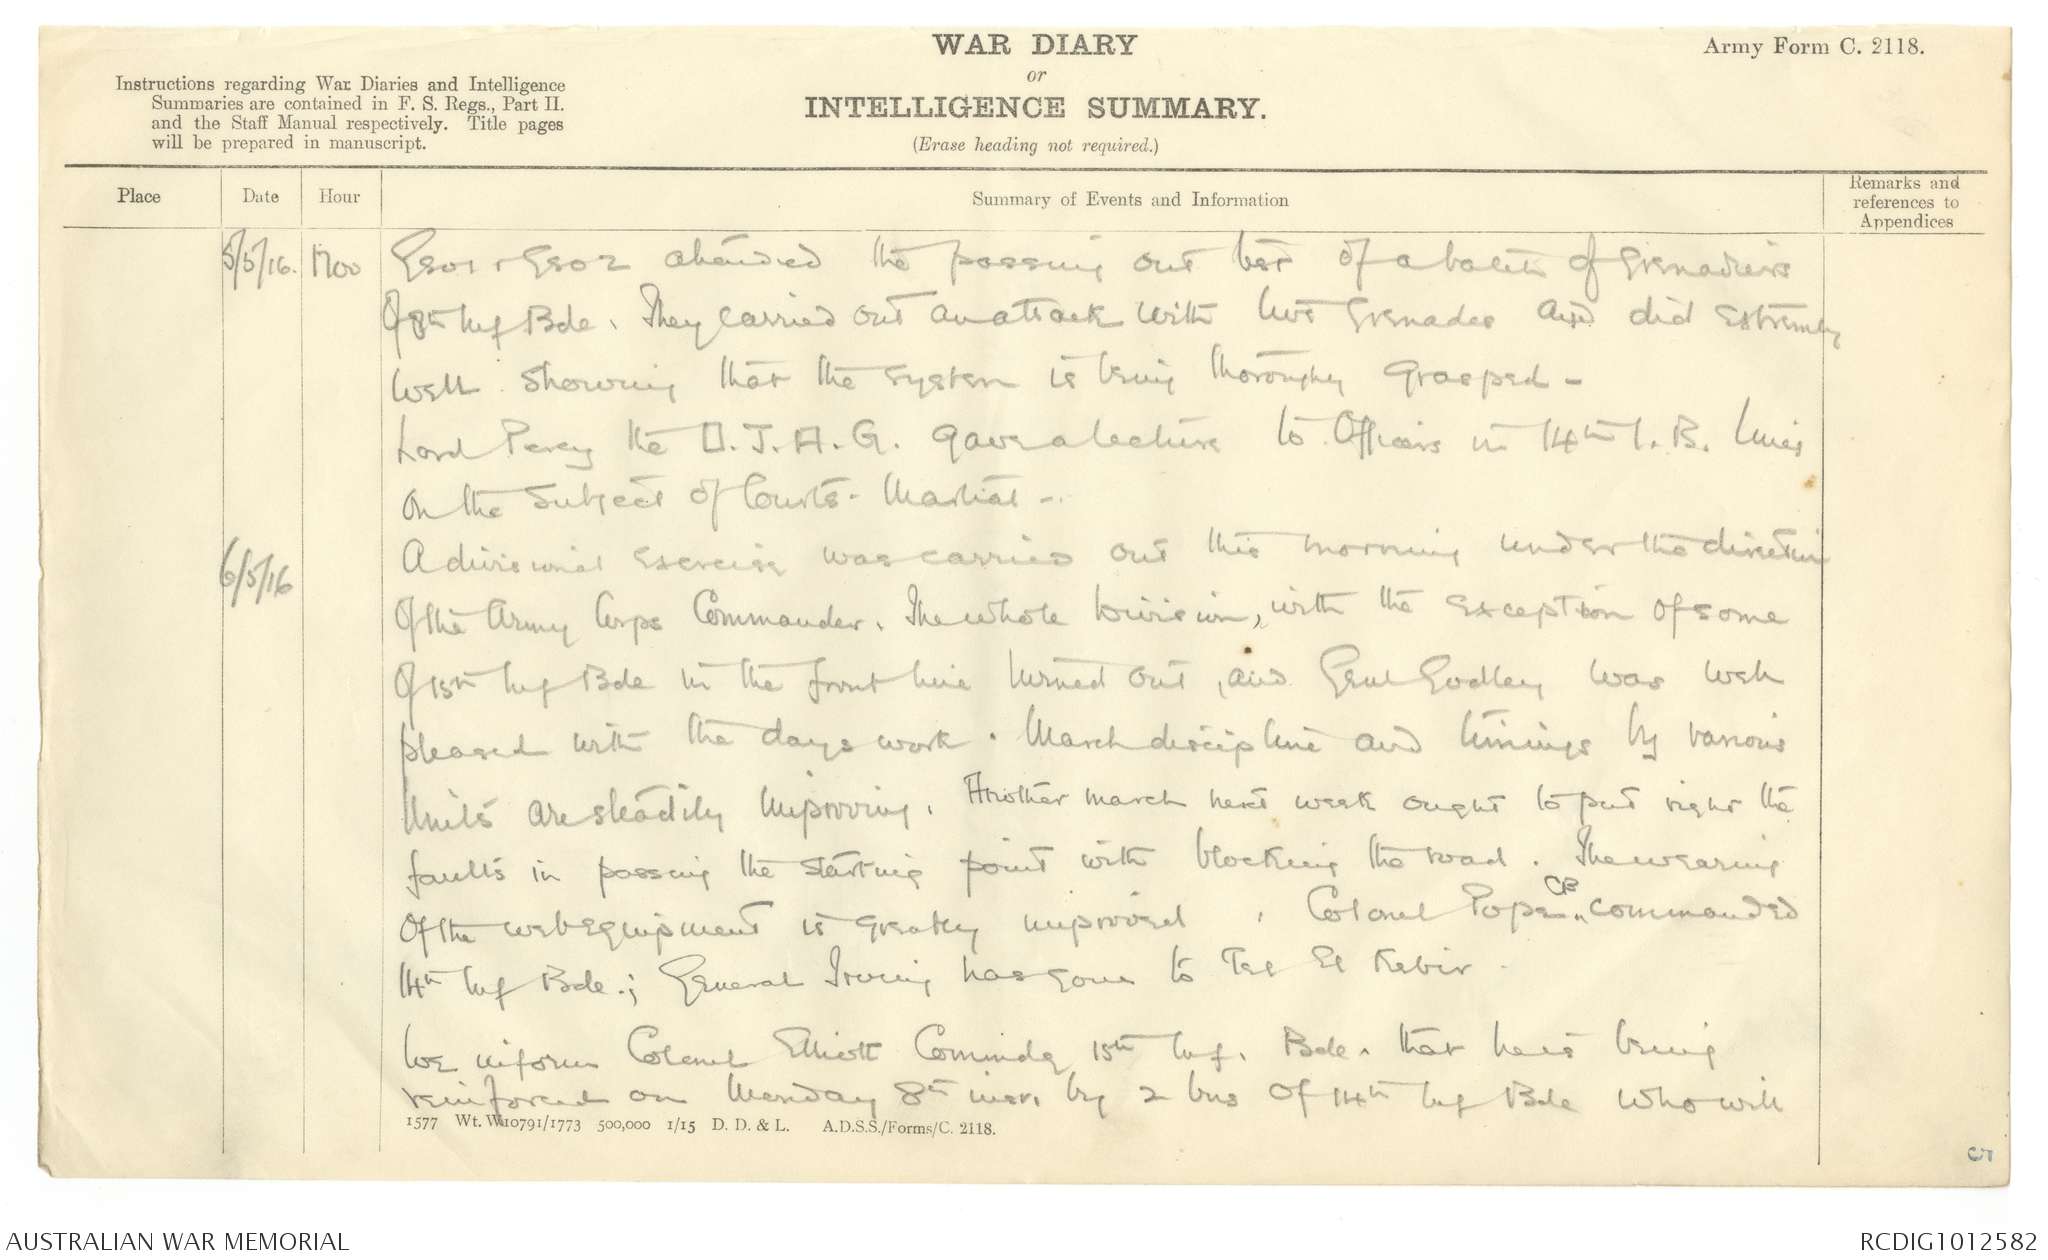 WAR DIARY
or
INTELLIGENCE SUMMARY.
(Erase heading not required.)
Army Form C. 2118.
Instructions regarding War Diaries and Intelligence
Summaries are contained in F. S. Regs., Part II.
and the Staff Manual respectively. Title pages
will be prepared in manuscript.
Place Date Hour Summary of Events and Information Remarks and references to Appendices
5/5/16. 1700 GSO1 + GSO2 attended the passing out test of a batch of Grenadiers
of 8th Inf Bde. They carried out an attack with live grenades and did extremely
well showing that the system is being thoroughly grasped -
Lord Percy the D.J.A.G. gave a lecture to Officers in 14th I.B. lines
on the subject of Courts-Martial -.
6/5/16 A divisional exercise was carried out this morning under the direction
of the Army Corps Commander. The whole Division, with the exception of some
of 15th Inf Bde in the front line turned out, and Genl Godley was well
pleased with the days work. March discipline and timings by various
Units are steadily improving. Another march next week ought to put right the
faults in passing the starting point with blocking the road. The wearing
of the web equipment is greatly improved. Colonel Pope CB commanded
14th Inf Bde.; General Irving has gone to Tel El Kebir.
We inform Colonel Elliott Commdg 15th Inf. Bde. that he is being
reinforced on Monday 8th inst. by 2 bns of 14th Inf Bde who will
1577 Wt. W10791/1773 500,000 1/15 D. D. & L. A.D.S.S./Forms/C. 2118.
AUSTRALIAN WAR MEMORIAL
RCDIG1012582